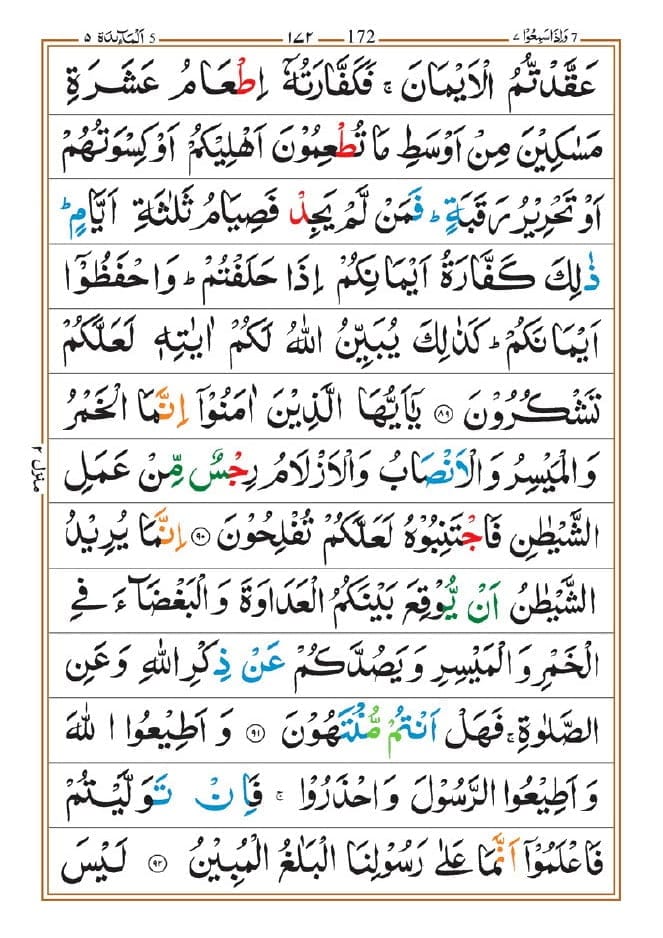 اَلْمَآئِدَة ٥ 5 ١٧٢ 172 وَاِذَا سَمِعُوْا ٧ 7
عَقَّدْتُّمُ الْاَيْمَانَ ۚ فَكَفَّارَتُهٗۤ اِطْعَامُ عَشَرَةِ
مَسٰكِيْنَ مِنْ اَوْسَطِ مَا تُطْعِمُوْنَ اَهْلِيْكُمْ اَوْ كِسْوَتُهُمْ
اَوْ تَحْرِيْرُ رَقَبَةٍ ؕ فَمَنْ لَّمْ يَجِدْ فَصِيَامُ ثَلٰثَةِ اَيَّامٍ ؕ
ذٰلِكَ كَفَّارَةُ اَيْمَانِكُمْ اِذَا حَلَفْتُمْ ؕ وَاحْفَظُوْۤا
اَيْمَانَكُمْ ؕ كَذٰلِكَ يُبَيِّنُ اللّٰهُ لَكُمْ اٰيٰتِهٖ لَعَلَّكُمْ
تَشْكُرُوْنَ ۝٨٩ يٰۤاَيُّهَا الَّذِيْنَ اٰمَنُوْۤا اِنَّمَا الْخَمْرُ
وَالْمَيْسِرُ وَالْاَنْصَابُ وَالْاَزْلَامُ رِجْسٌ مِّنْ عَمَلِ
الشَّيْطٰنِ فَاجْتَنِبُوْهُ لَعَلَّكُمْ تُفْلِحُوْنَ ۝٩٠ اِنَّمَا يُرِيْدُ
الشَّيْطٰنُ اَنْ يُّوْقِعَ بَيْنَكُمُ الْعَدَاوَةَ وَالْبَغْضَآءَ فِي
الْخَمْرِ وَالْمَيْسِرِ وَيَصُدَّكُمْ عَنْ ذِكْرِ اللّٰهِ وَعَنِ
الصَّلٰوةِ ۚ فَهَلْ اَنْتُمْ مُّنْتَهُوْنَ ۝٩١ وَاَطِيْعُوا اللّٰهَ
وَاَطِيْعُوا الرَّسُوْلَ وَاحْذَرُوْا ۚ فَاِنْ تَوَلَّيْتُمْ
فَاعْلَمُوْۤا اَنَّمَا عَلٰى رَسُوْلِنَا الْبَلٰغُ الْمُبِيْنُ ۝٩٢ لَيْسَ
منزل ٢